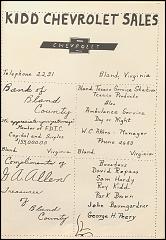 KIDD CHEVROLET SALES
CHEVROLET
Telephone 2221 Bland, Virginia
Bank of
Bland
County
Member of F.D.I.C.
Capital and Surplus
Bland, Virginia
Compliments of
J.A. Allen
Treasurer
of
Bland
County
Bland Texaco Service Station
Texaco Products
Also
Ambulance Service
Day or Night
W.C. Allen - Manager
Phone 2688
Bland Virginia
Boosters
David Repass
Sam Hardy
Roy Kidd
Park Brown
John Baumgardner
George H. Peery